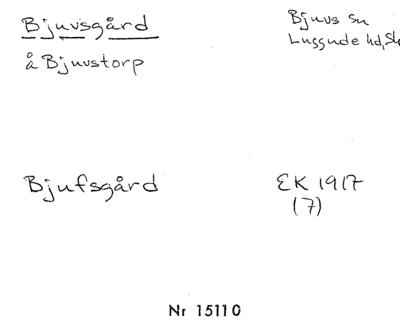 Bjuvsgård
å Bjuvstorp
Bjuvs sn
Luggude hd,
Bjufsgård
EK 1917
(7)
Nr 15110